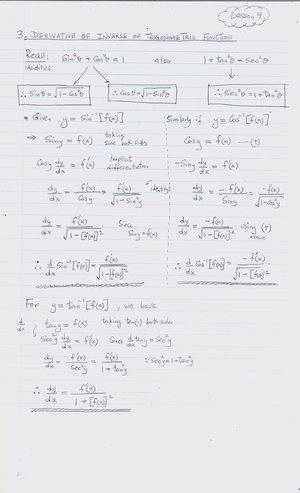 Lesson 9
3. DERIVATIVE OF INVERSE OF TRIGONOMETRIC FUNCTIONS
Recall: Sin²θ + Cos²θ = 1 also 1 + tan²θ = Sec²θ
identities
∴ Sinθ = √(1-Cos²θ) ∴ Cosθ = √(1-Sin²θ) ∴ Sec²θ = 1+tan²θ
Given y = Sin⁻¹[f(x)]
⇒ Siny = f(x) taking Sine both sides
Cosy dy/dx = f'(x) implicit differentiation
dy/dx = f'(x)/Cosy = f'(x)/√(1-Sin²y) identity
dy/dx = f'(x)/√(1-[f(x)]²) Since Siny = f(x)
∴ d/dx Sin⁻¹[f(x)] = f'(x)/√(1-[f(x)]²)
Similarly if y = Cos⁻¹[f(x)]
Cosy = f(x) — (†)
-Siny dy/dx = f'(x)
dy/dx = -f'(x)/Siny = -f'(x)/√(1-Cos²y)
dy/dx = -f'(x)/√(1-[f(x)]²) using (†) above
∴ d/dx Cos⁻¹[f(x)] = -f'(x)/√(1-[f(x)]²)
For y = tan⁻¹[f(x)], we have
d/dx tany = f(x) taking tan(·) both sides
Sec²y dy/dx = f'(x) Since d/dy tany = Sec²y
dy/dx = f'(x)/Sec²y = f'(x)/(1+tan²y) ∵ Sec²y = 1+tan²y
∴ dy/dx = f'(x)/(1+[f(x)]²)